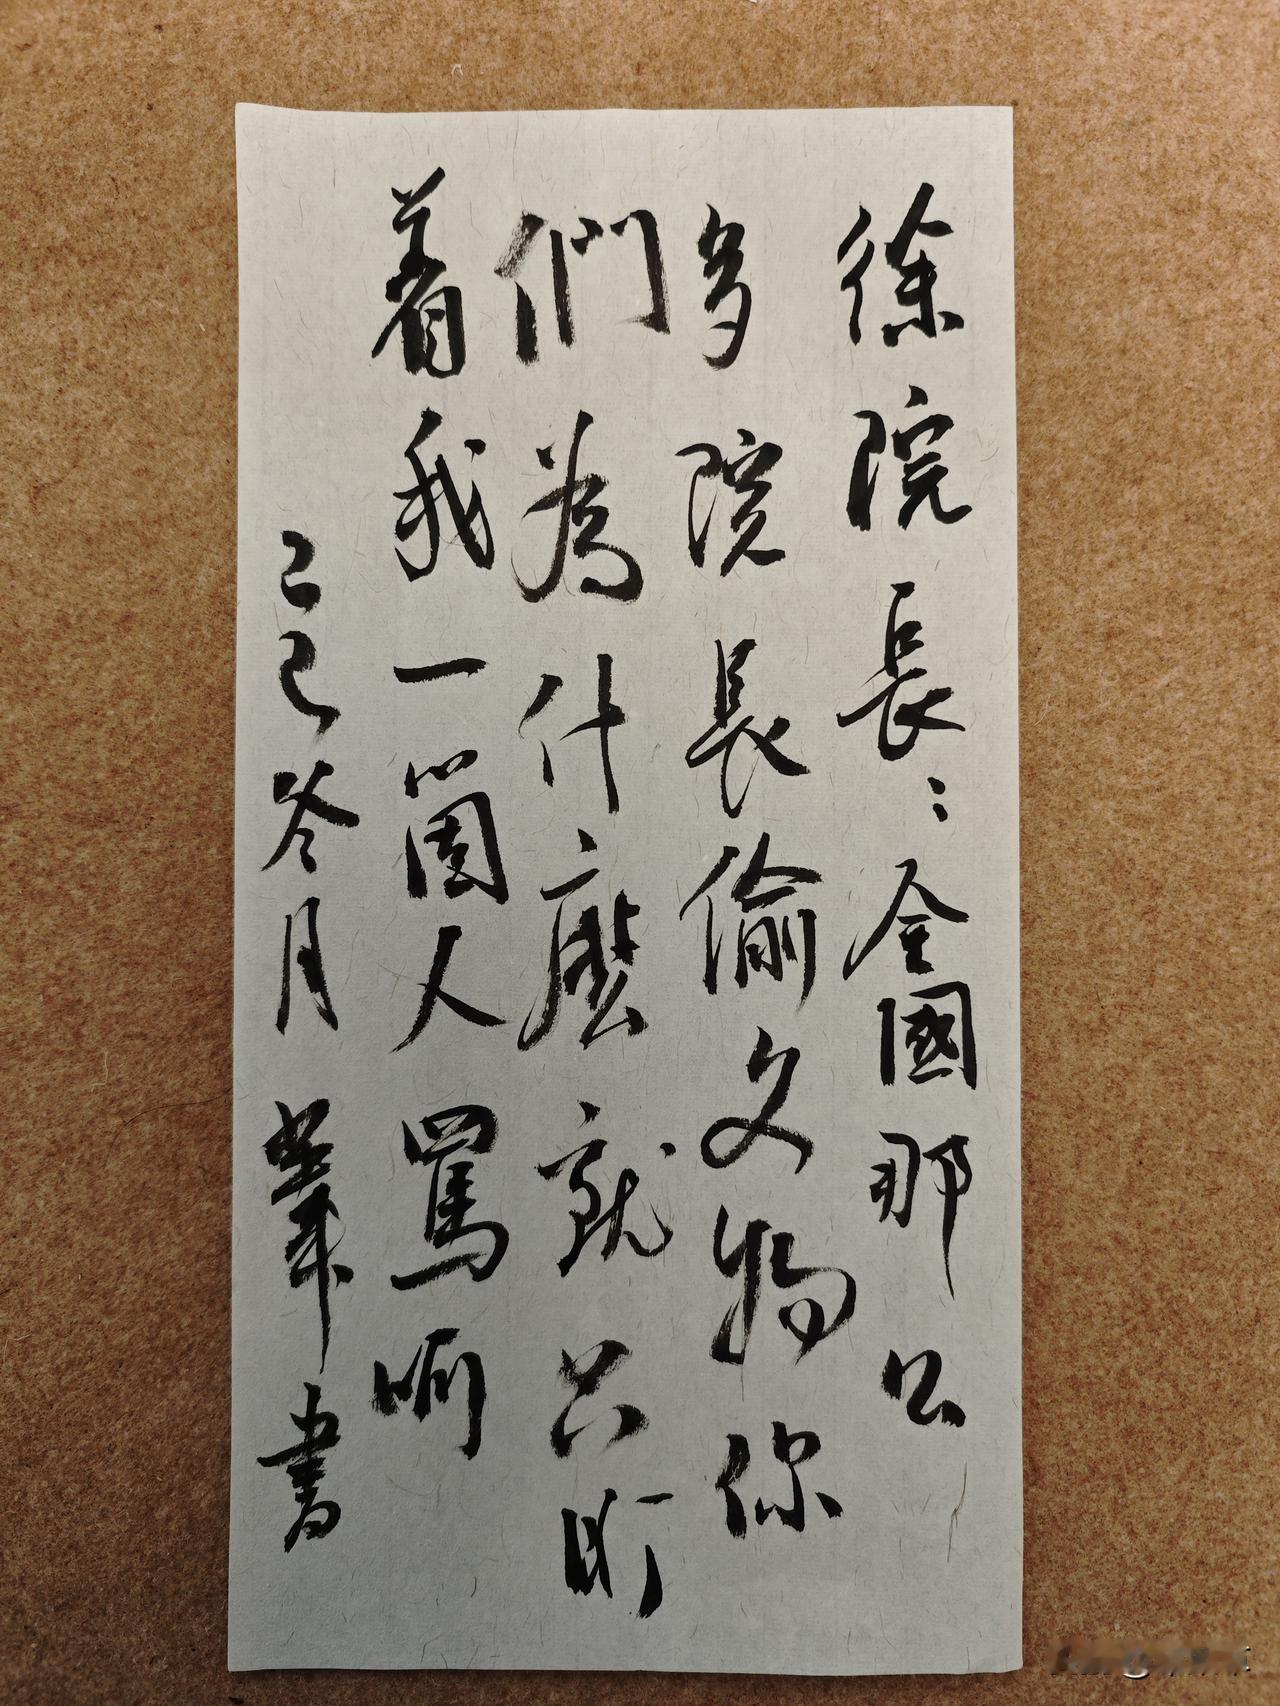 徐院長：全國那么
多院長偷文物你
們為什麽就只盯
着我一箇人罵啊
乙巳冬月書